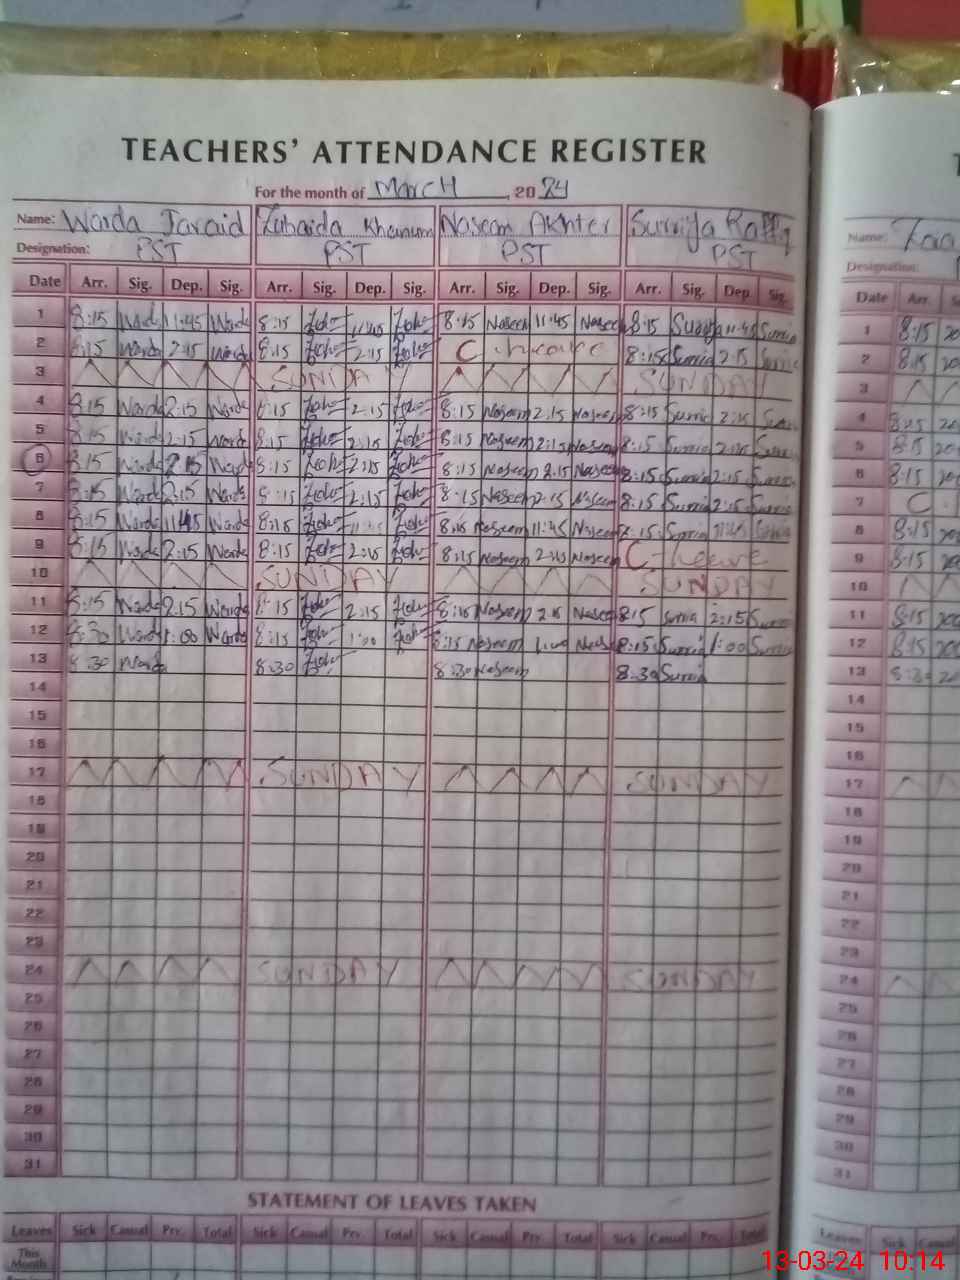 TEACHERS' ATTENDANCE REGISTER
For the month of March, 2024
Name: Warda Javaid Zubaida Khanum Naseem Akhter Surriya Rafiq
Designation: PST PST PST PST
Date Arr. Sig. Dep. Sig. Arr. Sig. Dep. Sig. Arr. Sig. Dep. Sig. Arr. Sig. Dep. Sig.
1 8:15 Warda 11:45 Warda 8:15 11:45 8:15 Naseem 11:45 Naseem 8:15 Surriya 11:45 Surria
2 8:15 Warda 2:15 Warda 8:15 2:15 C. leave 8:15 Surria 2:15 Surria
3 SUNDAY SUNDAY
4 8:15 Warda 2:15 Warda 8:15 2:15 8:15 Naseem 2:15 Naseem 8:15 Surria 2:15 Surria
5 8:15 Warda 2:15 Warda 8:15 2:15 8:15 Naseem 2:15 Naseem 8:15 Surria 2:15 Surria
6 8:15 Warda 2:15 Warda 8:15 2:15 8:15 Naseem 2:15 Naseem 8:15 Surria 2:15 Surria
7 8:15 Warda 2:15 Warda 8:15 2:15 8:15 Naseem 2:15 Naseem 8:15 Surria 2:15 Surria
8 8:15 Warda 11:45 Warda 8:15 11:45 8:15 Naseem 11:45 Naseem 8:15 Surria 11:45 Surria
9 8:15 Warda 2:15 Warda 8:15 2:15 8:15 Naseem 2:15 Naseem C. leave
10 SUNDAY SUNDAY
11 8:15 Warda 2:15 Warda 8:15 2:15 8:15 Naseem 2:15 Naseem 8:15 Surria 2:15 Surria
12 8:30 Warda 1:00 Warda 8:15 1:00 8:15 Naseem 1:00 8:15 Surria 1:00 Surria
13 8:30 Warda 8:30 8:30 Naseem 8:30 Surria
14
15
16
17 SUNDAY SUNDAY
18
19
20
21
22
23
24 SUNDAY SUNDAY
25
26
27
28
29
30
31
STATEMENT OF LEAVES TAKEN
Leaves Sick Casual Prv. Total Sick Casual Prv. Total Sick Casual Prv. Total Sick Casual Prv. Total
This Month
Name:
Designation:
Date Arr.
1 8:15
2 8:15
3
4 8:15
5 8:15
6 8:15
7 C
8 8:15
9 8:15
10
11 8:15
12 8:15
13 8:30
14
15
16
17
18
19
20
21
22
23
24
25
26
27
28
29
30
31
Leaves Sick Casual
This Month
13-03-24 10:14